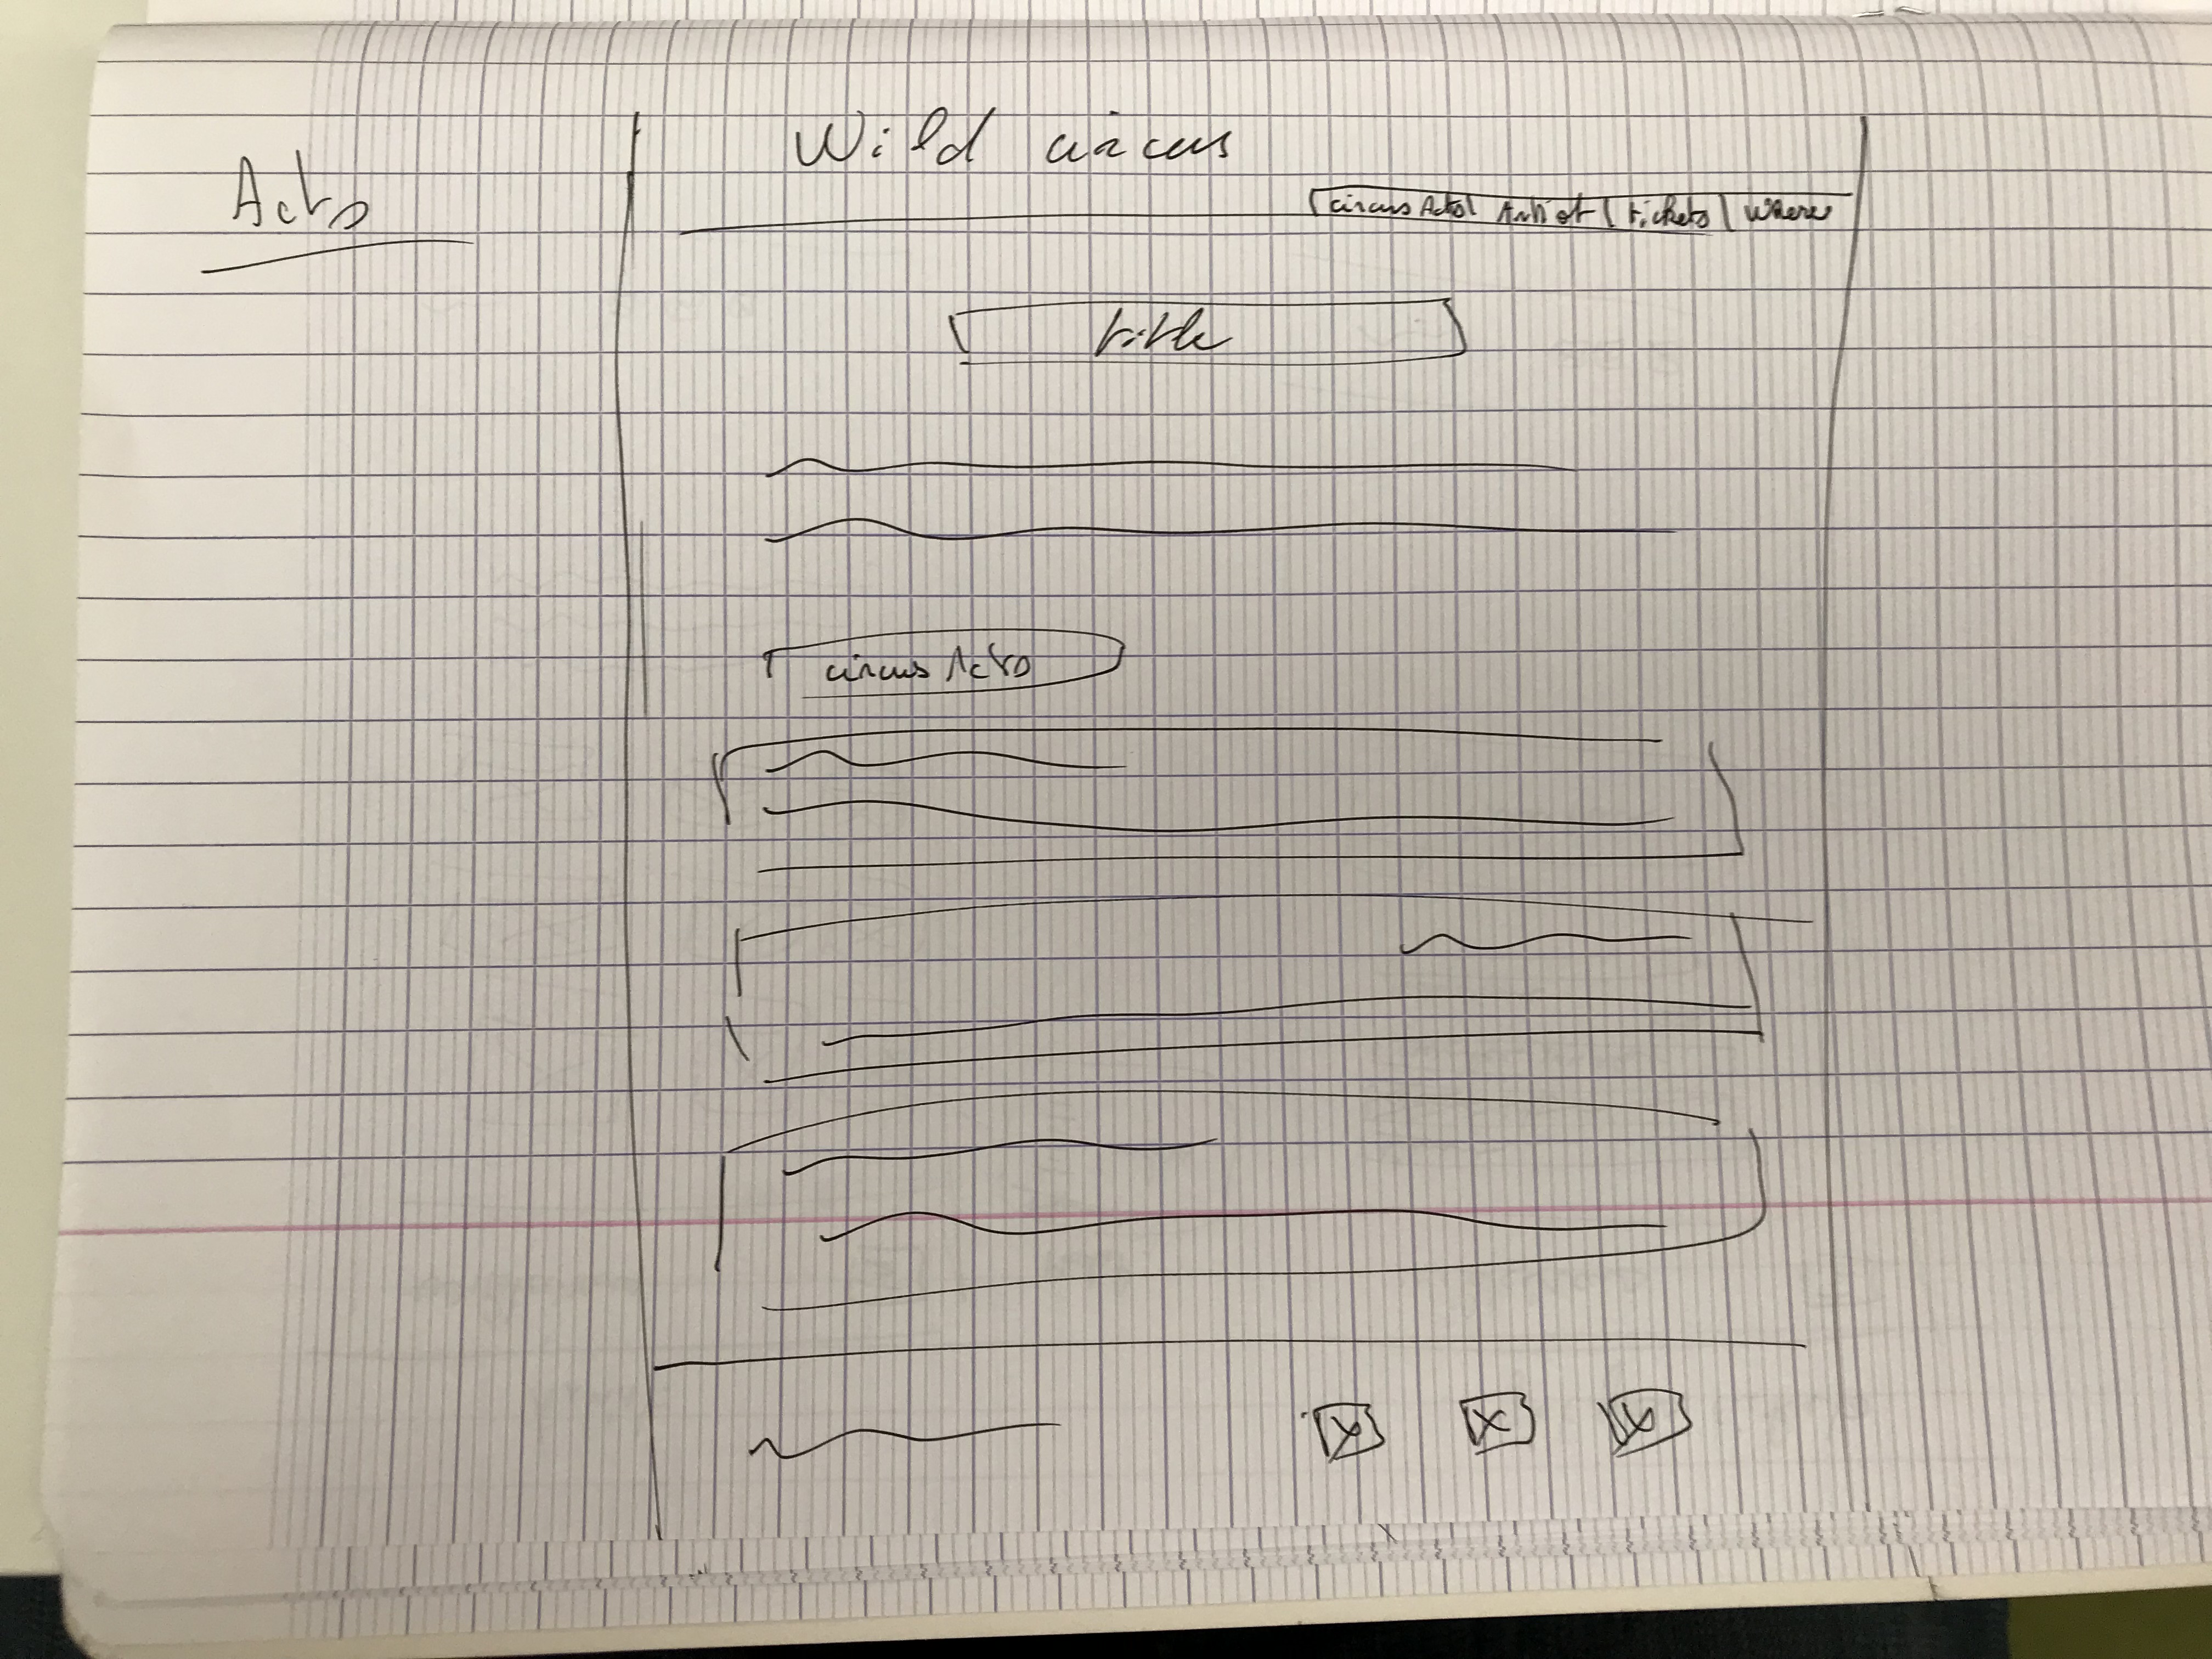 Acts
Wild circus
circus Acts | Artist | tickets | where
title
circus Acts